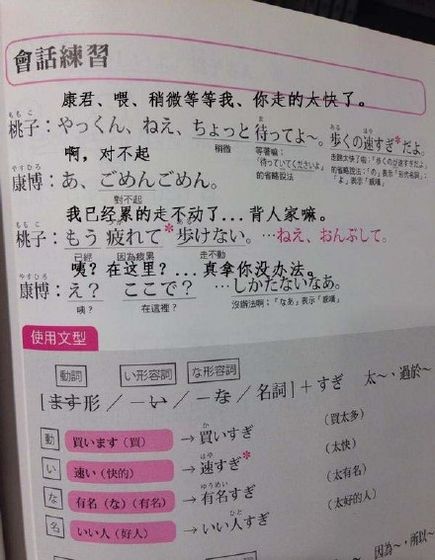 會話練習
康君、喂、稍微等等我、你走的太快了。
ももこ
桃子：やっくん、ねえ、ちょっと待ってよ～。歩くの速すぎ*だよ。
稍微 等著嘛：「待っていてくださいよ」的省略說法
走路太快了啦：「歩くのが速すぎだよ」的省略說法；「の」表示「形式名詞」；「よ」表示「感嘆」
啊，对不起
やすひろ
康博：あ、ごめんごめん。
對不起
我已经累的走不动了...背人家嘛。
ももこ つか ある
桃子：もう疲れて*歩けない。…ねえ、おんぶして。
已經 因為疲累 走不動
咦？在这里？...真拿你没办法。
やすひろ
康博：え？ ここで？ …しかたないなあ。
咦？ 在這裡？ 沒辦法啊；「なあ」表示「感嘆」
使用文型
動詞 い形容詞 な形容詞
[ます形／－い／－な／名詞]＋すぎ 太～、過於～
動 買います（買） → 買いすぎ （買太多）
い 速い（快的） → 速すぎ* （太快）
な 有名（な）（有名） → 有名すぎ （太有名）
名 いい人（好人） → いい人すぎ （太好的人）
因為～，所以～